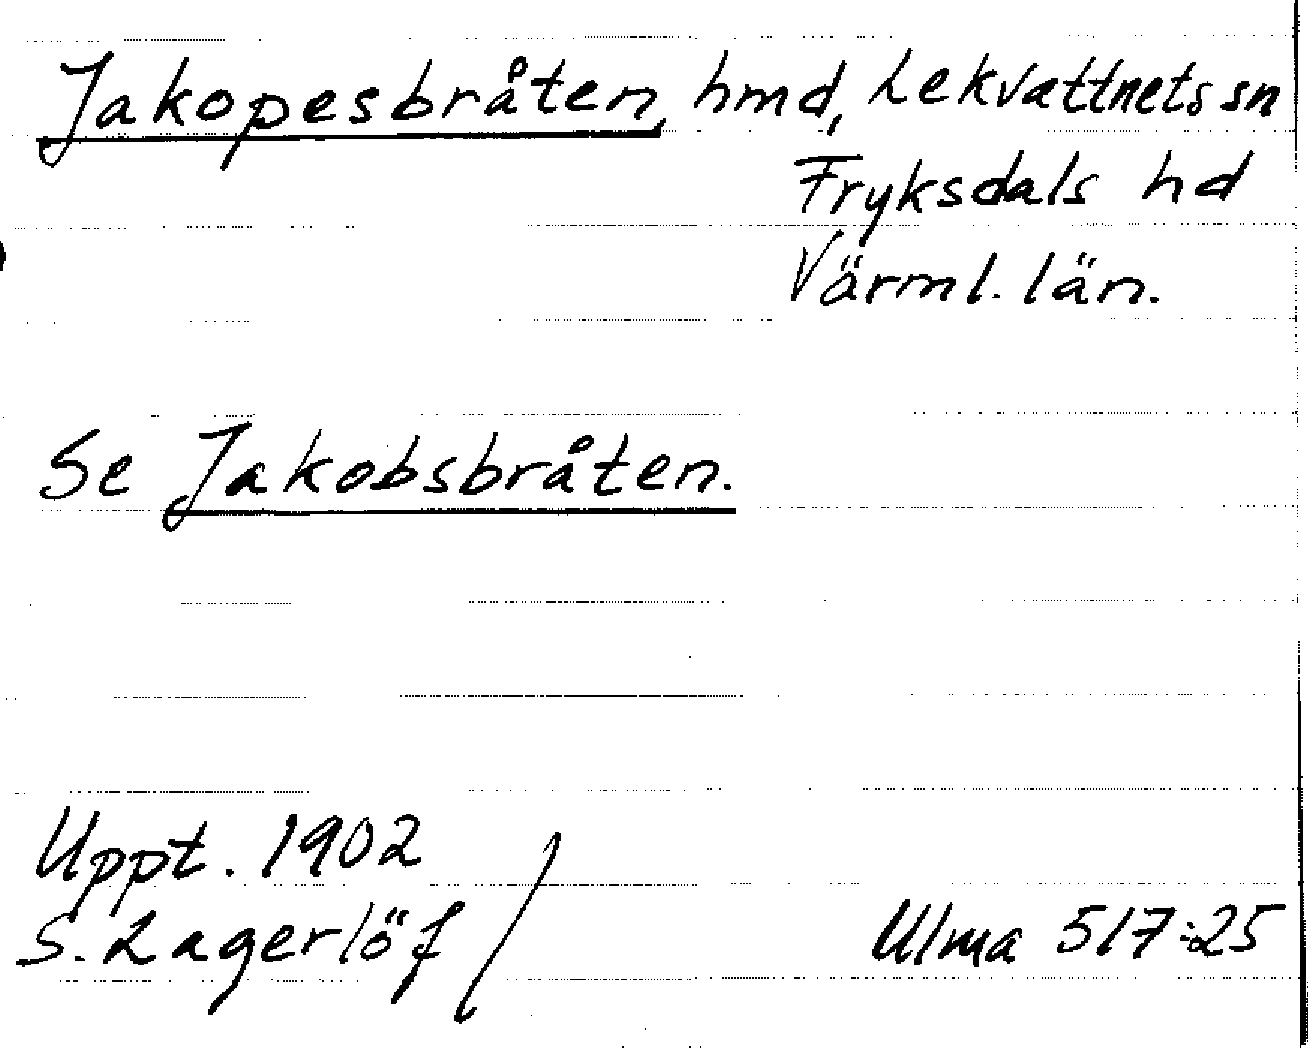 Jakopesbråten, hmd, Lekvattnets sn
Fryksdals hd
Värml. län.
Se Jakobsbråten.
Uppt. 1902
S. Lagerlöf /
Ulma 517:25